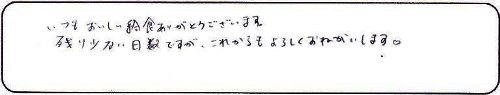 いつもおいしい給食ありがとうございます
残り少ない日数ですが、これからもよろしくおねがいします。